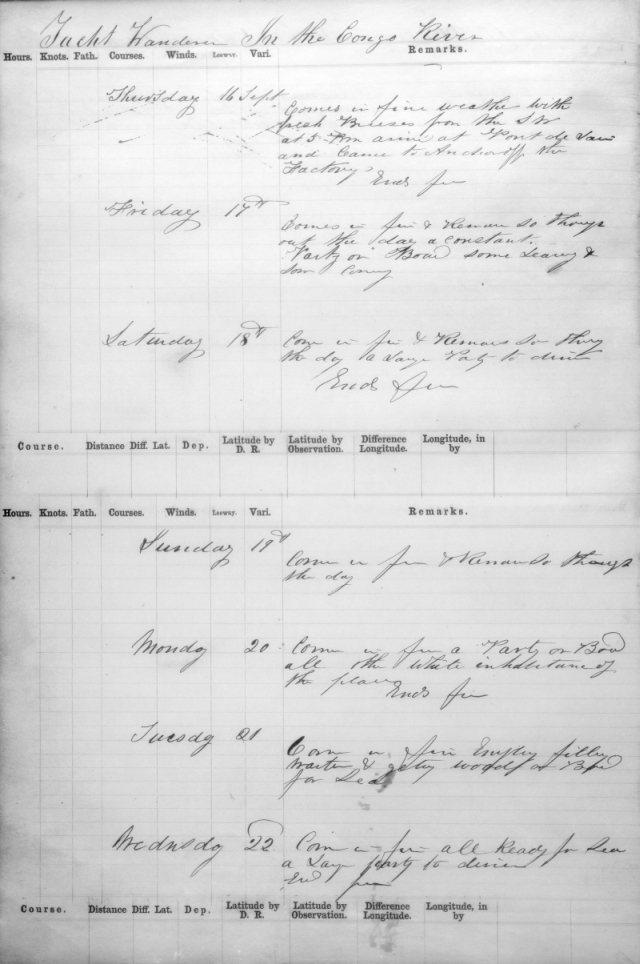 Yacht Wanderer In the Congo River
Hours. Knots. Fath. Courses. Winds. Leeway. Vari. Remarks.
Thursday 16 Sept Comes in fine weather with
fresh Breeses from the SW
at 5 Pm arive at Pont de
and Came to Anchor off the
Factorys
Ends fin
Friday 17th Comes in fin & Remans so through
out the day a constant
Party on Board some Leavig &
som
Saturday 18th Come in fin & Remans so throug
the day a Large Party to dinner
Ends fin
Course. Distance Diff. Lat. Dep. Latitude by D. R. Latitude by Observation. Difference Longitude. Longitude, in by
Hours. Knots. Fath. Courses. Winds. Leeway. Vari. Remarks.
Sunday 19th Come in fin & Remans so through
the day
Monday 20 Come in fin a Party on Bord
all the white inhabitance of
the place
Ends fin
Tuesdy 21 Come in fine Employ filling
water & wood on Bord
for Sea
Wednsdy 22 Come in fin all Ready for Sea
a Large party to dinner
End fin
Course. Distance Diff. Lat. Dep. Latitude by D. R. Latitude by Observation. Difference Longitude. Longitude, in by